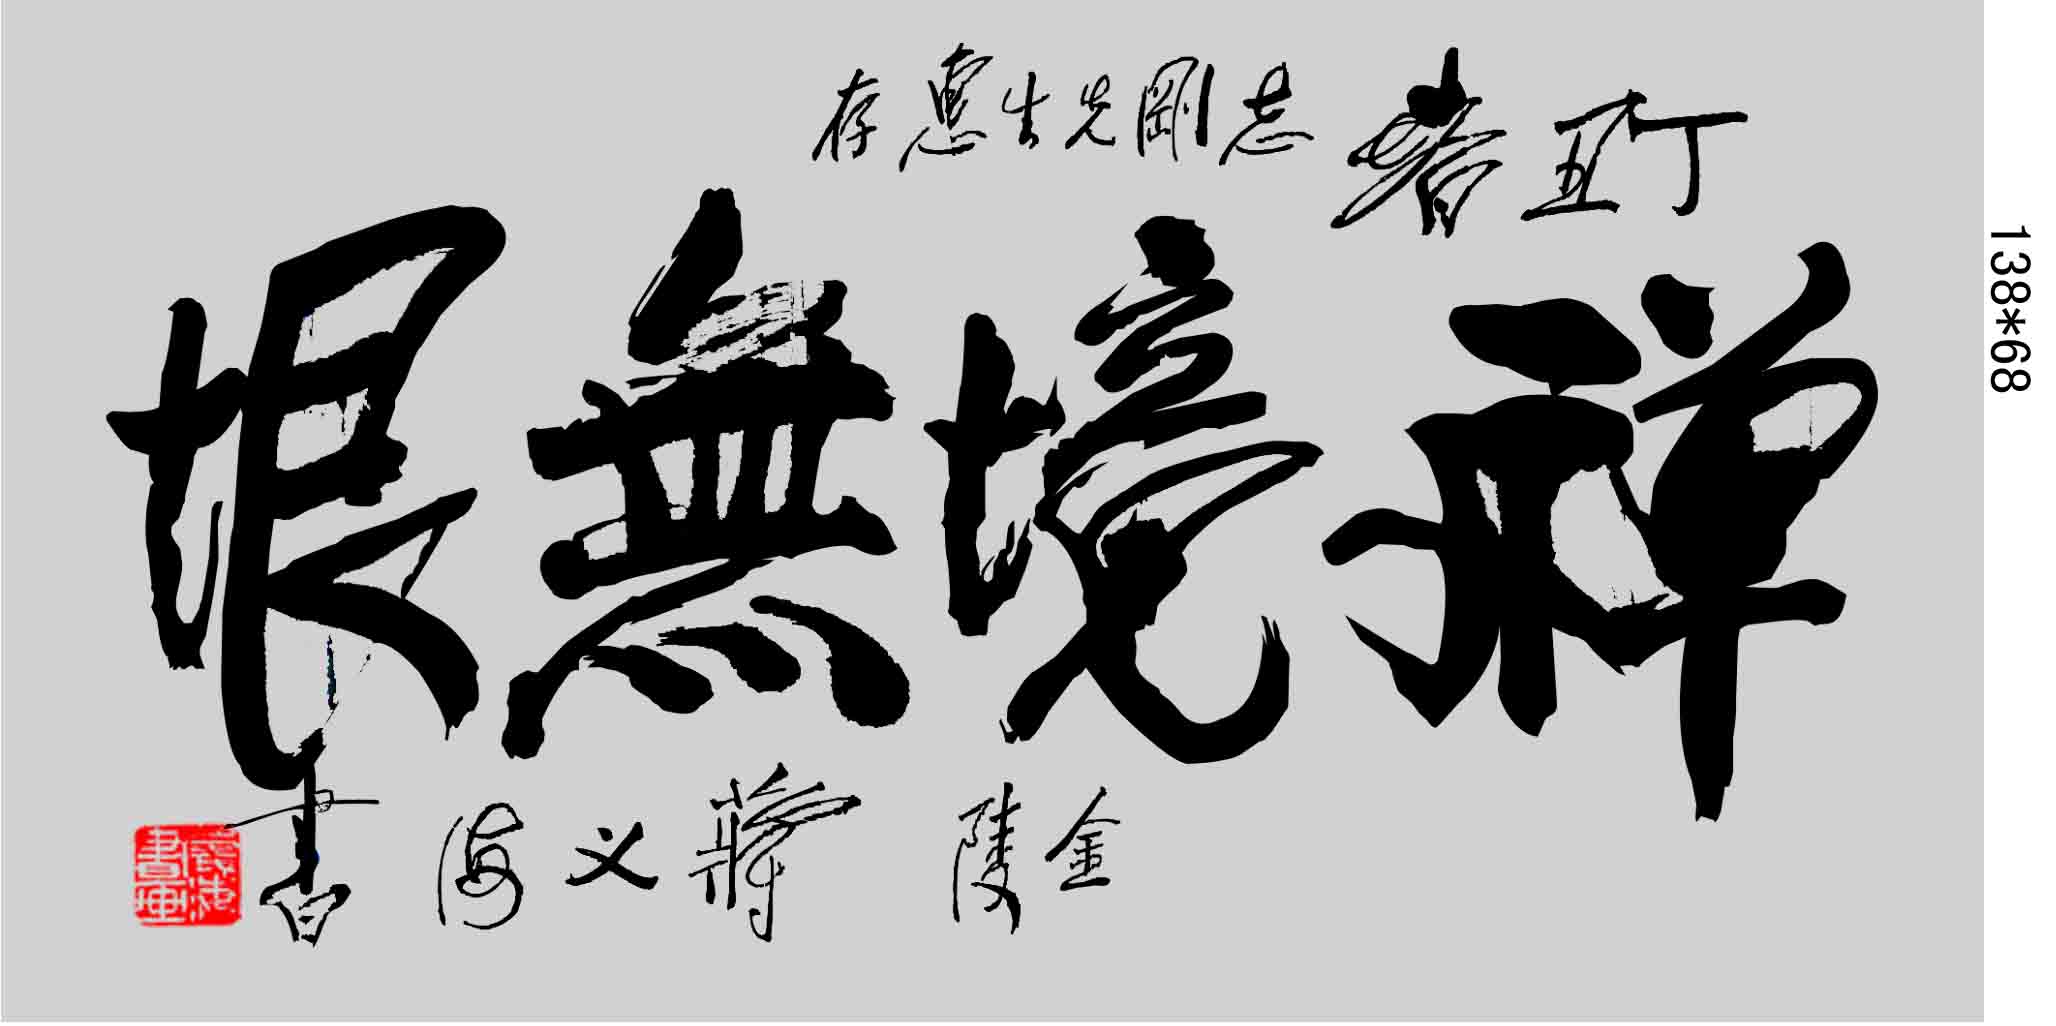 丁亚春志刚先生惠存
禅境無垠
金陵蒋义海书
138*68